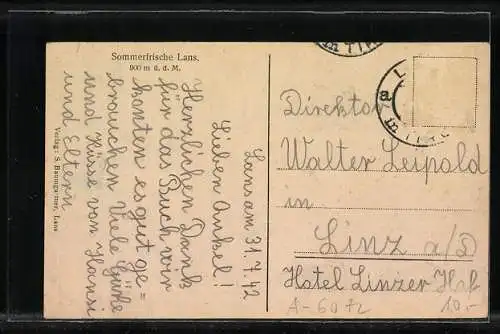 Sommerfrische Lans.
900 m ü. d. M.
Lans am 31.7.42
Lieben Onkel!
Herzlichen Dank
für das Buch wir
konten es gut ge=
brauchen Viele Grüße
und Küsse von Hansi
und Eltern
Verlag: S. Baumgartner, Lans
Direktor
Walter Leipold
in
Linz a/D
Hotel Linzer Hof
A-6072
10.-
L
a
in TIR
in TIR